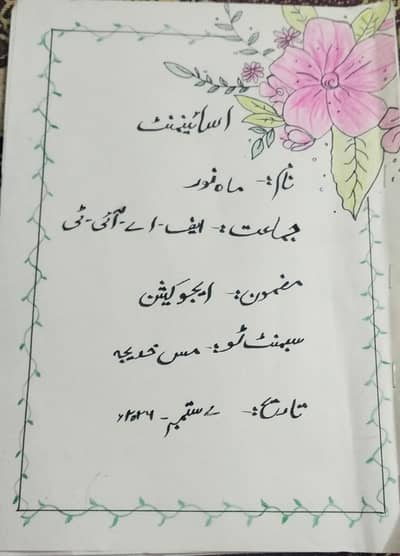 اسائیمنٹ
نام:- ماہ نور
جماعت:- ایف-اے-آئی-ٹی
مضمون:- ایجوکیشن
سبمنٹ ٹو:- مس خدیجہ
تاریخ:- ۷ ستمبر- ۲۰۲۶ء